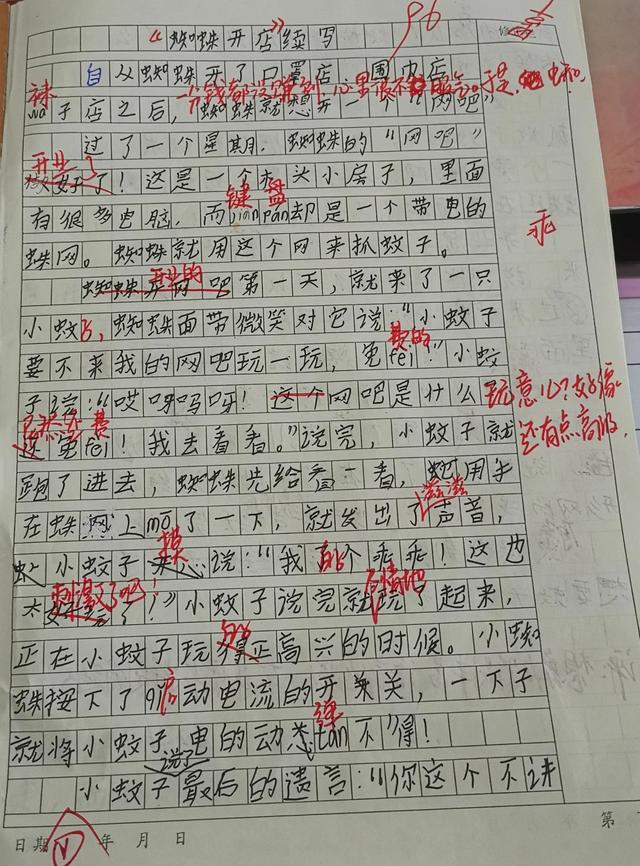 96
《蜘蛛开店》续写
自从蜘蛛开了口罩店、围巾店
袜wà子店之后，一分钱都没赚到，心里很不服气。于是，蜘蛛就想开一个“网吧”
过了一个星期，蜘蛛的“网吧”
开业了！这是一个木头小房子，里面
有很多电脑，而键盘jiàn pán却是一个带电的
蛛网。蜘蛛就用这个网来抓蚊子。
乖
蜘蛛开网吧开业的第一天，就来了一只
小蚊子，蜘蛛面带微笑对它说：“小蚊子
要不来我的网吧玩一玩，免费的fèi！”小蚊
子说：“哎呀妈呀！这个网吧是什么玩意儿？好像
还有点高级，
还免费fèi！我去看看。”说完，小蚊子就
跑了进去，蜘蛛先给看一看，用手
在蛛网上摸mō了一下，就发出了滋滋声音，
小蚊子说：“我的个乖乖！这也
太刺激了吧！”小蚊子说完就玩了起来，
正在小蚊子玩得正高兴的时候。小蜘
蛛按下了启qǐ动电流的开关，一下子
就将小蚊子电的动弹tán不得！
小蚊子说了最后的遗言：“你这个不讲
日期 年 月 日
第